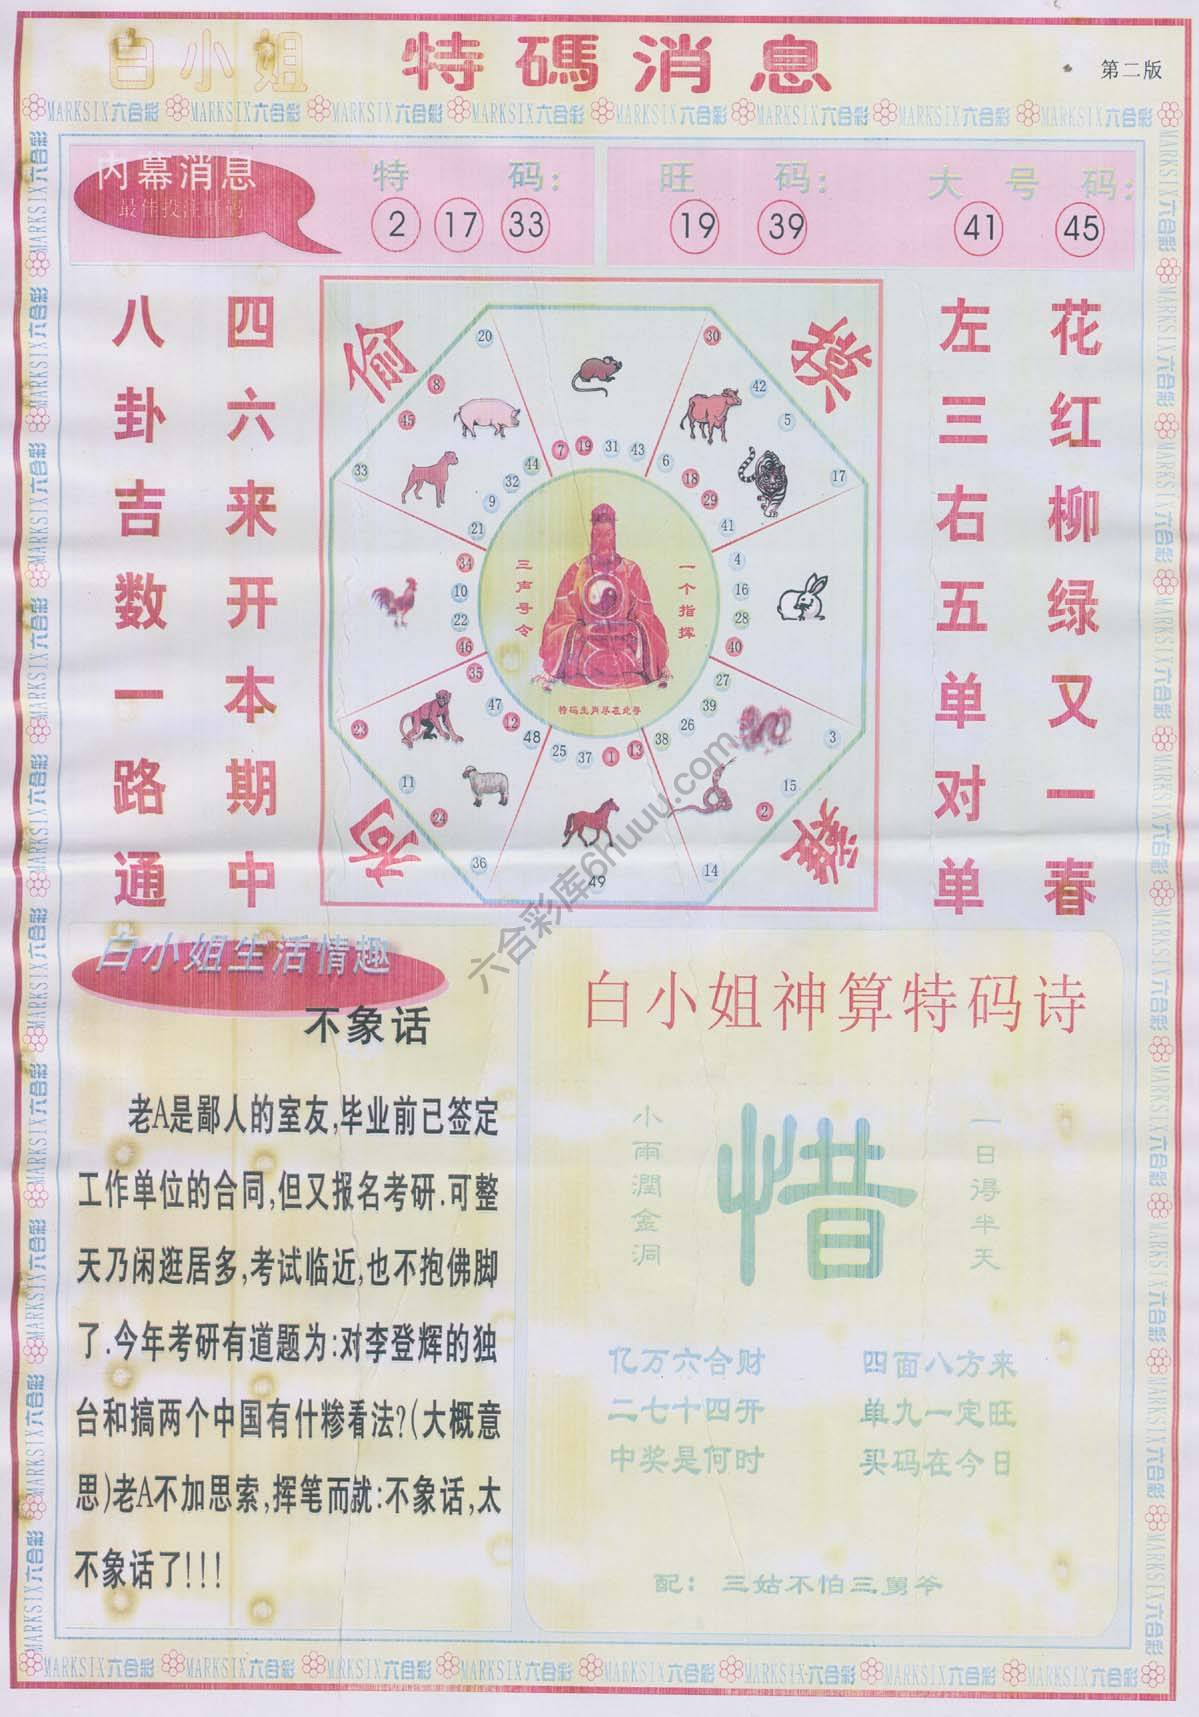 白小姐 特碼消息 第二版
MARKSIX六合彩 MARKSIX六合彩 MARKSIX六合彩 MARKSIX六合彩 MARKSIX六合彩 MARKSIX六合彩 MARKSIX六合彩 MARKSIX六合彩
内幕消息
最佳投注
特码:
2 17 33
旺码:
19 39
大号码:
41 45
八卦吉数一路通
四六来开本期中
左三右五单对单
花红柳绿又一春
偷
20 8 45 33
30 42 5 17
44 32 9 21
7 19 31 43
6 18 29 41
34 10 22 46
4 16 28 40
35 47 12 48
25 37 1 13
38 26 39 27
23 11 24 36
49
3 15 2 14
三声号令
一个指挥
特码生肖尽在此寻
六合彩库6huuu.com
白小姐生活情趣
不象话
老A是鄙人的室友,毕业前已签定
工作单位的合同,但又报名考研.可整
天乃闲逛居多,考试临近,也不抱佛脚
了.今年考研有道题为:对李登辉的独
台和搞两个中国有什糁看法?(大概意
思)老A不加思索,挥笔而就:不象话,太
不象话了!!!
白小姐神算特码诗
小雨潤金洞
惜
一日得半天
亿万六合财 四面八方来
二七十四开 单九一定旺
中奖是何时 买码在今日
配: 三姑不怕三舅爷
MARKSIX六合彩 MARKSIX六合彩 MARKSIX六合彩 MARKSIX六合彩 MARKSIX六合彩 MARKSIX六合彩 MARKSIX六合彩 MARKSIX六合彩